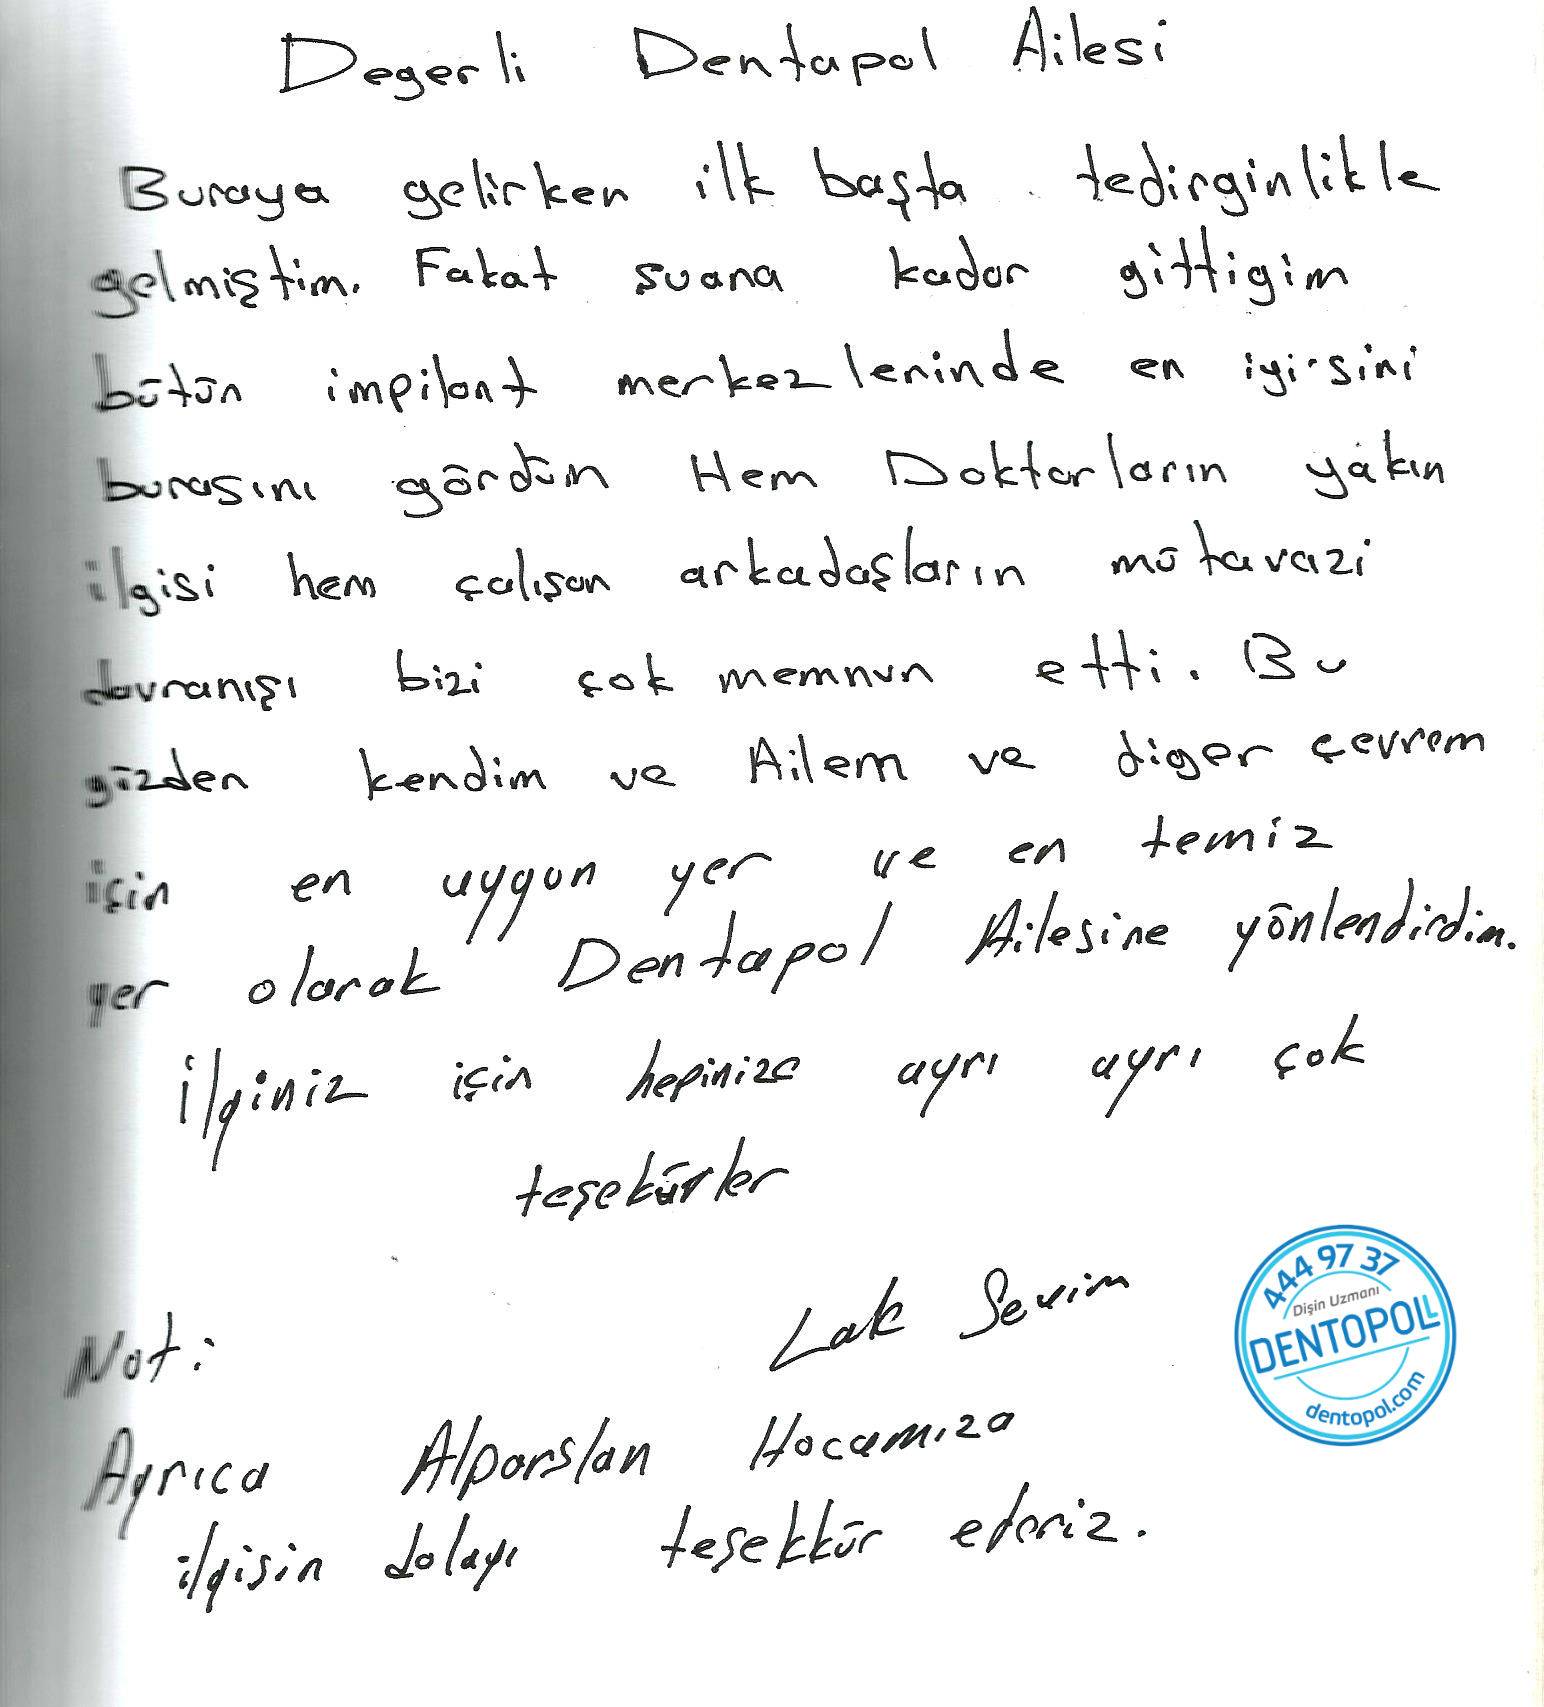 Degerli Dentapol Ailesi
Buraya gelirken ilk başta tedirginlikle
gelmiştim. Fakat suana kadar gittigim
bütün impilant merkezlerinde en iyisini
burasını gördüm Hem Doktorların yakın
ilgisi hem çalışan arkadaşların mütavazi
davranışı bizi çok memnun etti. Bu
yüzden kendim ve Ailem ve diger çevrem
için en uygun yer ve en temiz
yer olarak Dentapol Ailesine yönlendirdim.
İlginiz için hepinize ayrı ayrı çok
teşekürler
Lak Sevim
Not:
Ayrıca Alparslan Hocamıza
ilgisin dolayı teşekkür ederiz.
444 97 37
Dişin Uzmanı
DENTOPOLL
dentopol.com